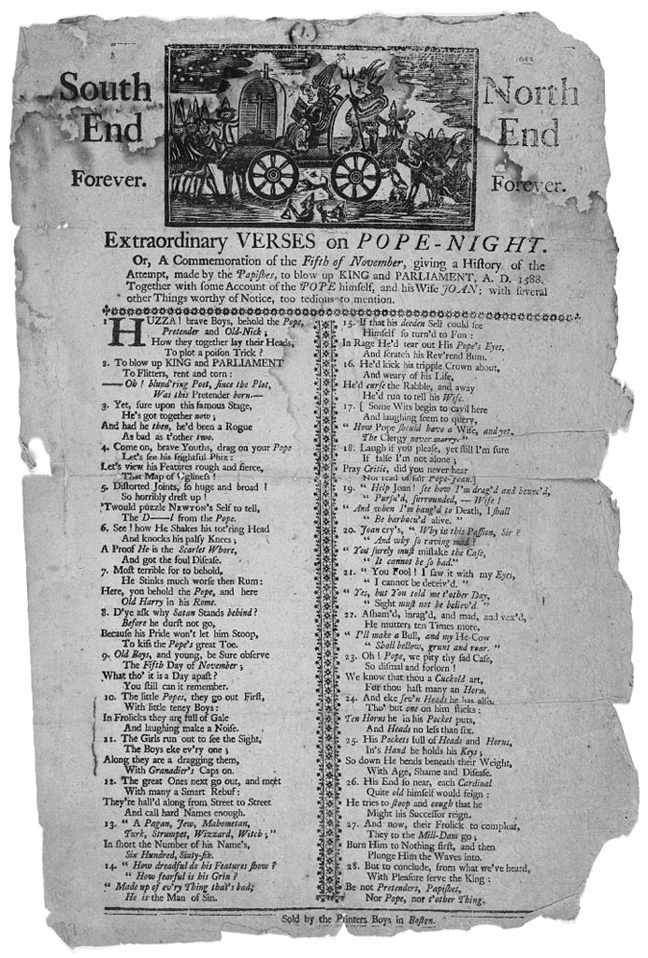 South End Forever.
North End Forever.
Extraordinary VERSES on POPE-NIGHT.
Or, A Commemoration of the Fifth of November, giving a Hiſtory of the
Attempt, made by the Papiſhes, to blow up KING and PARLIAMENT, A. D. 1588.
Together with ſome Account of the POPE himſelf, and his Wife JOAN; with ſeveral
other Things worthy of Notice, too tedious to mention.
1 HUZZA! brave Boys, behold the Pope,
Pretender and Old-Nick;
How they together lay their Heads,
To plot a poiſon Trick?
2. To blow up KING and PARLIAMENT
To Flitters, rent and torn:
—Oh! blund'ring Poet, ſince the Plot,
Was this Pretender born.—
3. Yet, ſure upon this famous Stage,
He's got together now;
And had he then, he'd been a Rogue
As bad as t'other two.
4. Come on, brave Youths, drag on your Pope
Let's ſee his frightful Phiz:
Let's view his Features rough and fierce,
That Map of Ugline's!
5. Diſtorted Joints, ſo huge and broad!
So horribly dreſt up!
'Twould puzzle NEWTON's Self to tell,
The D—l from the Pope.
6. See! how He Shakes his tot'ring Head
And knocks his palſy Knees;
A Proof He is the Scarlet Whore,
And got the foul Diſeaſe.
7. Moſt terrible for to behold,
He Stinks much worſe then Rum:
Here, you behold the Pope, and here
Old Harry in his Rome.
8. D'ye aſk why Satan Stands behind?
Before he durſt not go,
Becauſe his Pride won't let him Stoop,
To kiſs the Pope's great Toe.
9. Old Boys, and young, be Sure obſerve
The Fifth Day of November;
What tho' it is a Day apaſt?
You ſtill can it remember.
10. The little Popes, they go out Firſt,
With little teney Boys:
In Frolicks they are full of Gale
And laughing make a Noiſe.
11. The Girls run out to ſee the Sight,
The Boys eke ev'ry one;
Along they are a dragging them,
With Granadier's Caps on.
12. The great Ones next go out, and meet
With many a Smart Rebuf:
They're hall'd along from Street to Street
And call hard Names enough.
13. "A Pagan, Jew, Mahometan,
Turk, Strumpet, Wizzard, Witch;"
In ſhort the Number of his Name's,
Six Hundred, Sixty-ſix.
14. "How dreadful do his Features ſhow?
"How fearful is his Grin?
"Made up of ev'ry Thing that's bad;
He is the Man of Sin.
15. If that his deeden Self could ſee
Himſelf ſo turn'd to Fun:
In Rage He'd tear out His Pope's Eyes,
And ſcratch his Rev'rend Bum.
16. He'd kick his tripple Crown about,
And weary of his Life,
He'd curſe the Rabble, and away
He'd run to tell his Wife.
17. [ Some Wits begin to cavil here
And laughing ſeem to query,
"How Pope ſhould have a Wife, and yet,
The Clergy never marry."
18. Laugh if you pleaſe, yet ſtill I'm ſure
If falſe I'm not alone;
Pray Critic, did you never hear
Nor read of fair Pope-Joan.]
19. "Help Joan! ſee how I'm drag'd and bounc'd,
"Purſu'd, ſurrounded, — Wife!
"And when I'm bang'd to Death, I ſhall
"Be barbacu'd alive."
20. Joan cry's, "Why in this Paſſion, Sir?
"And why ſo raving mad?
"You ſurely muſt miſtake the Caſe,
"It cannot be ſo bad."
21. "You Fool! I ſaw it with my Eyes,
"I cannot be deceiv'd."
"Yes, but You told me t'other Day,
"Sight muſt not be believ'd."
22. Aſham'd, inrag'd, and mad, and vex'd,
He mutters ten Times more,
"I'll make a Bull, and my He-Cow
"Shall bellow, grunt and roar."
23. Oh! Pope, we pity thy ſad Caſe,
So diſmal and forlorn!
We know that thou a Cuckold art,
For thou haſt many an Horn.
24. And eke ſev'n Heads he has alſo,
Tho' but one on him ſticks:
Ten Horns he in his Pocket puts,
And Heads no leſs than ſix.
25. His Pockets full of Heads and Horns,
In's Hand he holds his Keys;
So down He bends beneath their Weight,
With Age, Shame and Diſeaſe.
26. His End ſo near, each Cardinal
Quite old himſelf would feign:
He tries to ſtoop and cough that he
Might his Succeſſor reign.
27. And now, their Frolick to compleat,
They to the Mill-Dam go;
Burn Him to Nothing firſt, and then
Plunge Him the Waves into.
28. But to conclude, from what we've heard,
With Pleaſure ſerve the King:
Be not Pretenders, Papiſhes,
Nor Pope, nor t'other Thing.
Sold by the Printers Boys in Boſton.